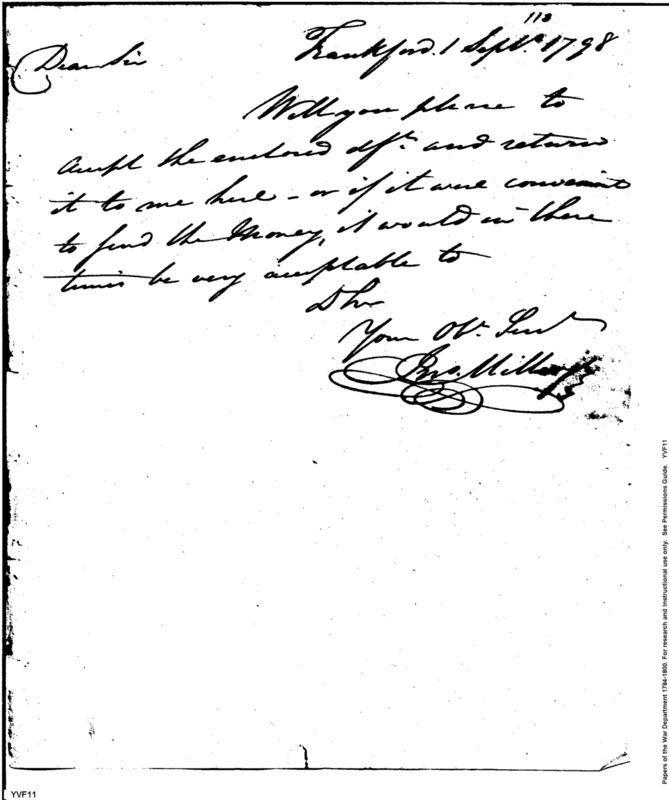 113
Frankford. 1 Septr. 1798
Dear Sir
Will you please to
accept the enclosed dft. and return
it to me here - or if it were convenient
to find the Money, it would in these
times be very acceptable to
D Sir
Your Obt. Servt
Jno. Miller Jr
Papers of the War Department 1784-1800. For research and instructional use only. See Permissions Guide. YVF11
YVF11